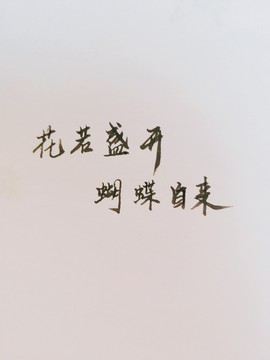 花若盛开
蝴蝶自来